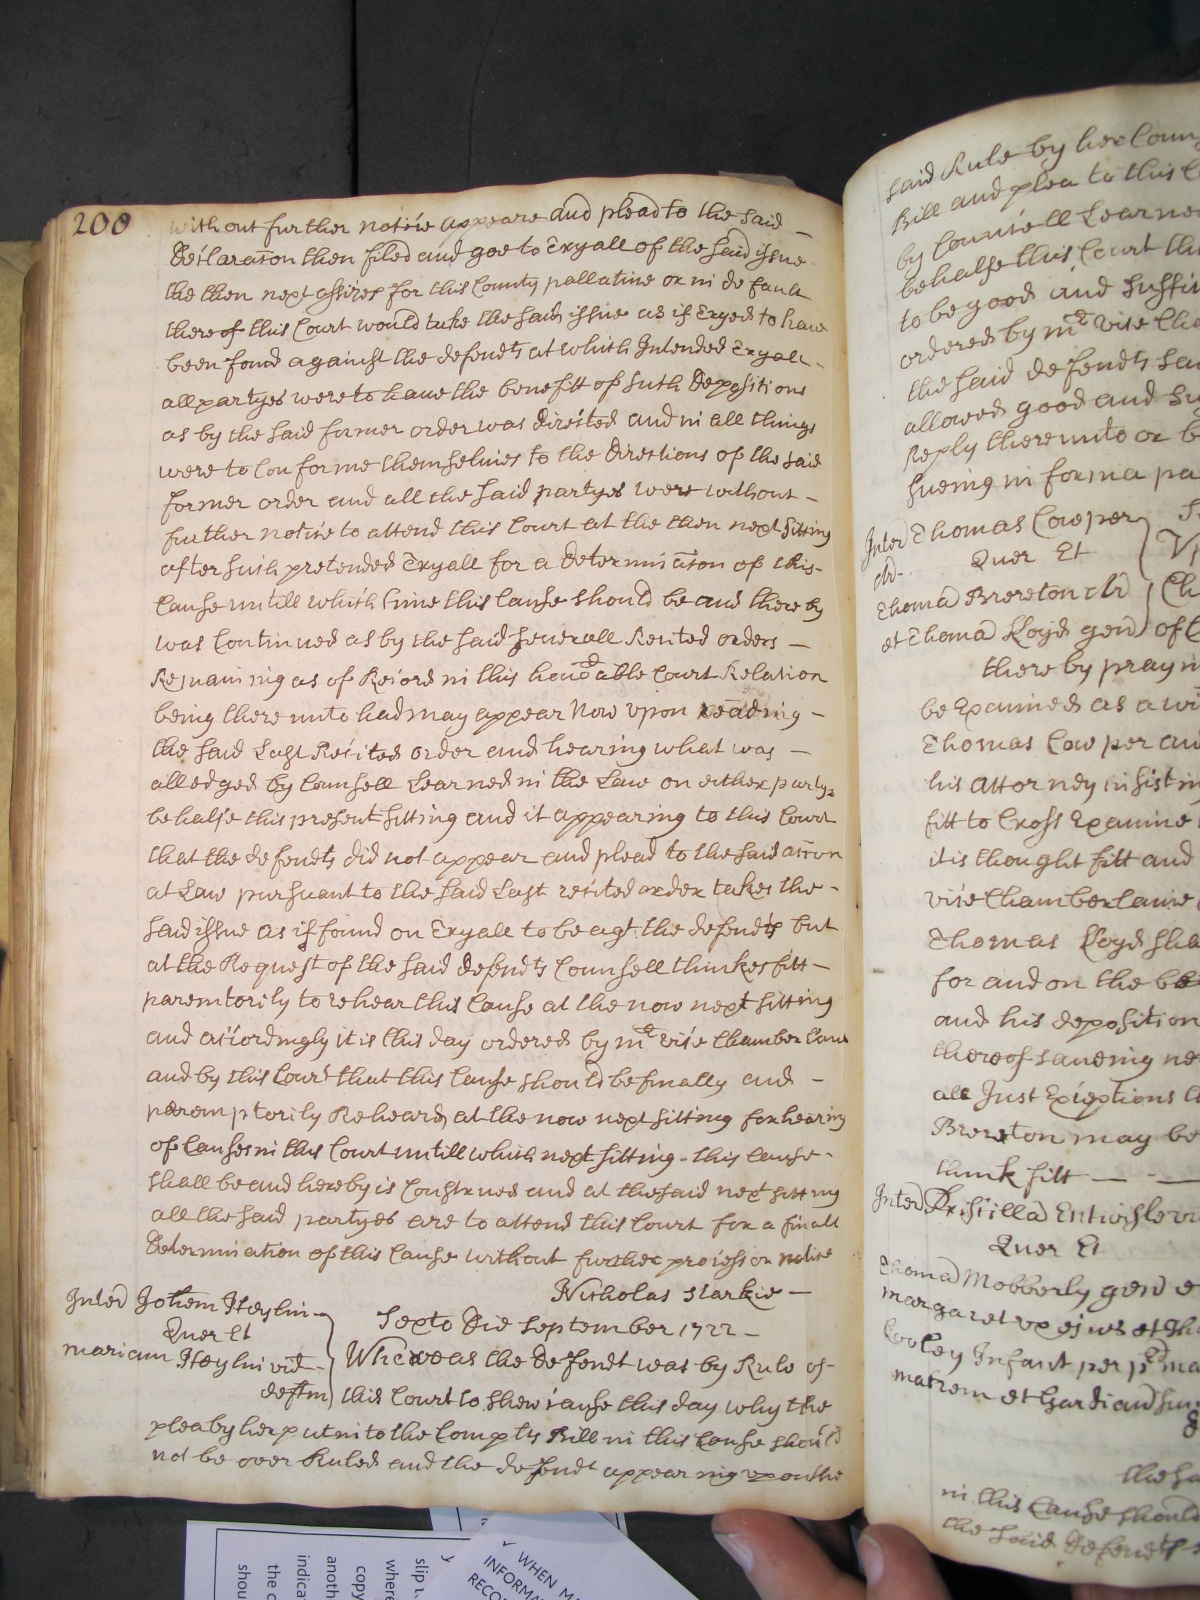 200
without further notice appeare and plead to the said
Declaracon then filed and goe to Tryall of the said issue
the then next assizes for this County pallatine or in default
thereof this Court would take the said issue as if Tryed to have
been fond against the defendts at which Intended Tryall
all partyes were to have the benefitt of such Depositions
as by the said former order was directed and in all things
were to Conforme themselves to the directions of the said
former order and all the said partyes were without
further notice to attend this Court at the then next sitting
after such pretended Tryall for a determinacon of this
Cause untill which time this Cause should be and thereby
was Continued as by the said severall Recited orders
Remaining as of Record in this honoble Court Relation
being thereunto had may appear Now upon reading
the said Last Recited order and hearing what was
alledged by Counsell Learned in the Law on either partys
behalfe this present sitting and it appearing to this Court
that the defendts did not appear and plead to the said accon
at Law pursuant to the said Last recited order takes the
said issue as if found on Tryall to be agt the defendts but
at the Request of the said defendts Counsell thinkes fitt
paremtorily to rehear this Cause at the now next sitting
and accordingly it is this day ordered by mr vice Chamberlane
and by this Court that this Cause should be finally and
peremptorily Reheard at the now next sitting for hearing
of Causes in this Court untill which next sitting this Cause
shall be and hereby is Continued and at the said next sitting
all the said partyes are to attend this Court for a finall
Determination of this Cause without further process or notice
Nicholas Starkie
Inter Jothem Heylin
Quer Et
mariam Heylin vid
deftm
Sexto Die September 1722
Whereas the Defendt was by Rule of
this Court to shew cause this day why the
plea by her put in to the Complts Bill in this Cause should
not be over Ruled and the defendt appearing upon the
said Rule by her Coun
Bill and plea to this C
by Councell Learne
behalfe this Court th
to be good and suffi
ordered by mr vice Cha
the said defendts sa
allowed good and su
Reply thereunto or b
sueing in forma pa
Inter Thomas Cowper
Quer Et
Thoma Brereton
et Thoma Lloyd gen
of t
thereby prayin
be Examined as a wi
Thomas Cowper an
his attorney insistin
fitt to Cross Examine
it is thought fitt and
vice Chamberlaine
Thomas Lloyd sha
for and on the be
and his deposition
thereof saveing ne
all Just Exceptions t
Brereton may be
think fitt
Inter Priscilla Entwisle vi
Quer Et
Thoma Mobberly gen e
margaret ux ejus et Tho
Cooley Infant per ma
matrem et Gardian su
the sa
in this Cause should
the said defendts
WHEN M
INFORMAT
RECO
slip
where
copy
anoth
indica
the c
shou